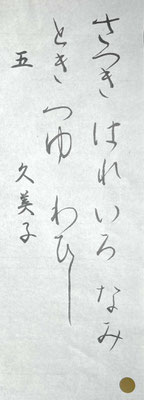 さつき はれ いろ なみ
とき つゆ わひし
五 久美子